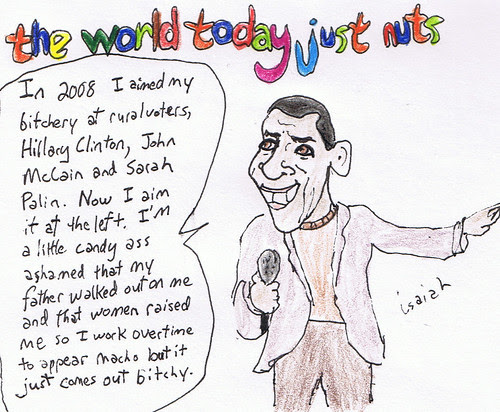 the world today just nuts
In 2008 I aimed my
bitchery at rural voters,
Hillary Clinton, John
McCain and Sarah
Palin. Now I aim
it at the left. I'm
a little candy ass
ashamed that my
father walked out on me
and that women raised
me so I work overtime
to appear macho but it
just comes out bitchy.
isaiah